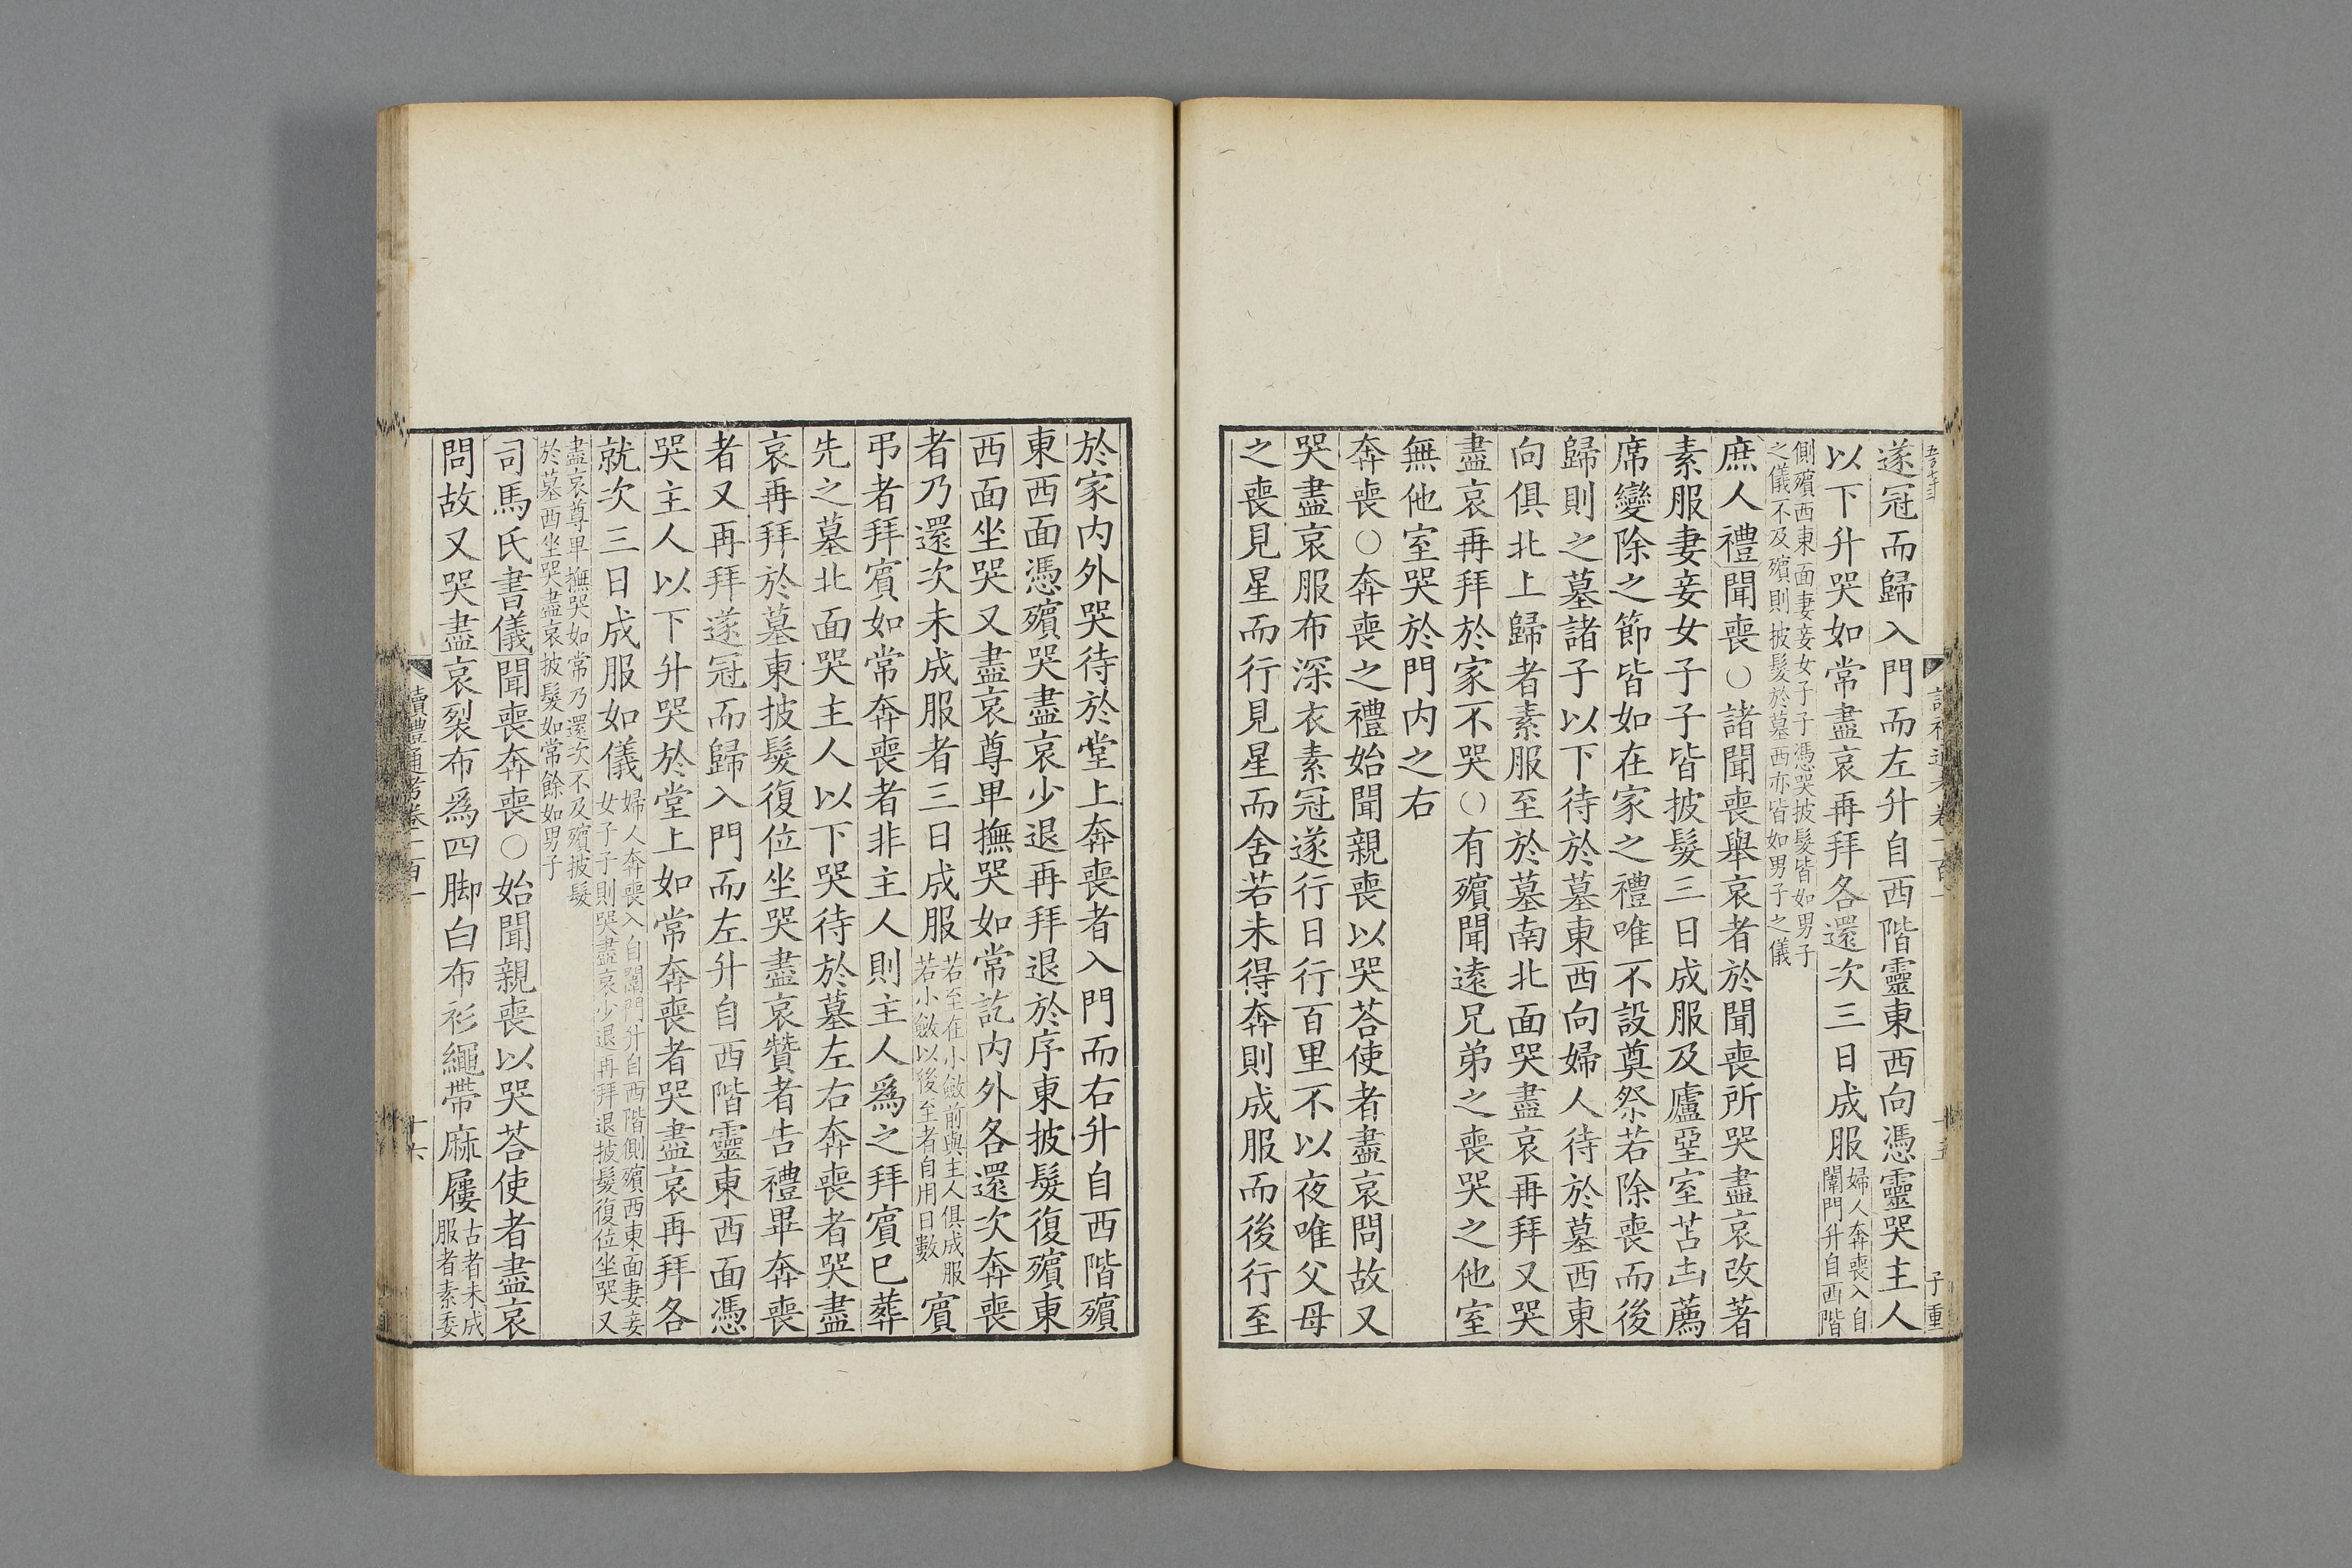 遂冠而歸入門而左升自西階靈東西向憑靈哭主人
以下升哭如常盡哀再拜各還次三日成服婦人奔喪入自
闈門升自西階
側殯西東面妻妾女子子憑哭披髮皆如男子
之儀不及殯則披髮於墓西亦皆如男子之儀
庶人禮聞喪○諸聞喪舉哀者於聞喪所哭盡哀改著
素服妻妾女子子皆披髮三日成服及廬堊室苫凷薦
席變除之節皆如在家之禮唯不設奠祭若除喪而後
歸則之墓諸子以下待於墓東西向婦人待於墓西東
向俱北上歸者素服至於墓南北面哭盡哀再拜又哭
盡哀再拜於家不哭○有殯聞遠兄弟之喪哭之他室
無他室哭於門内之右
奔喪○奔喪之禮始聞親喪以哭荅使者盡哀問故又
哭盡哀服布深衣素冠遂行日行百里不以夜唯父母
之喪見星而行見星而舍若未得奔則成服而後行至
於家内外哭待於堂上奔喪者入門而右升自西階殯
東西面憑殯哭盡哀少退再拜退於序東披髮復殯東
西面坐哭又盡哀尊卑撫哭如常訖内外各還次奔喪
者乃還次未成服者三日成服若至在小斂前與主人俱成服
若小斂以後至者自用日數賓
弔者拜賓如常奔喪者非主人則主人爲之拜賓已葬
先之墓北面哭主人以下哭待於墓左右奔喪者哭盡
哀再拜於墓東披髮復位坐哭盡哀贊者告禮畢奔喪
者又再拜遂冠而歸入門而左升自西階靈東西面憑
哭主人以下升哭於堂上如常奔喪者哭盡哀再拜各
就次三日成服如儀婦人奔喪入自闈門升自西階側殯西東面妻妾
女子子則哭盡哀少退再拜退披髮復位坐哭又
盡哀尊卑撫哭如常乃還次不及殯披髮
於墓西坐哭盡哀披髮如常餘如男子
司馬氏書儀聞喪奔喪○始聞親喪以哭荅使者盡哀
問故又哭盡哀裂布爲四脚白布衫繩帶麻屨古者未成
服者素委
讀禮通考卷一百一
十六